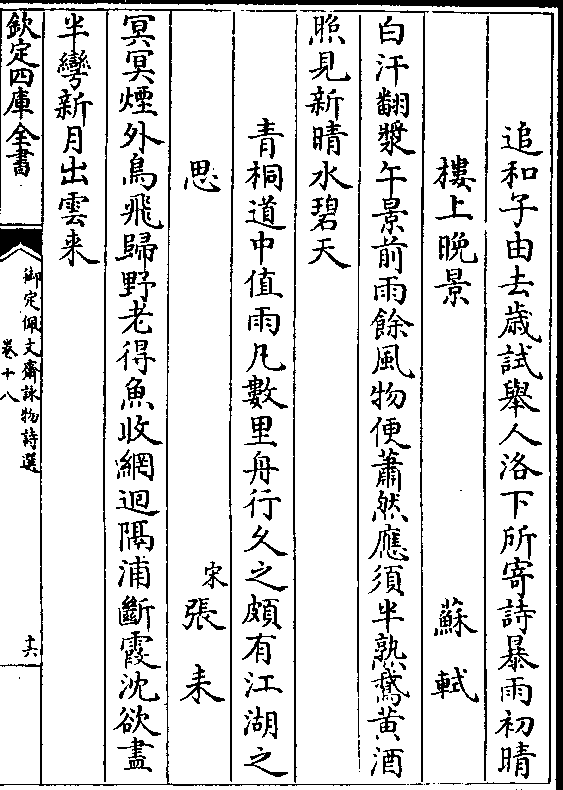 追和子由去歲試舉人洛下所寄詩暴雨初晴
樓上晚景 蘇軾
白汗翻漿午景前雨餘風物便蕭然應須半熟鵞黃酒
照見新晴水碧天
青桐道中值雨凡數里舟行久之頗有江湖之
思 宋張耒
冥冥煙外鳥飛歸野老得魚收網迴隅浦斷霞沈欲盡
半彎新月出雲来
欽定四庫全書
御定佩文齋詠物詩選
卷十八
十六